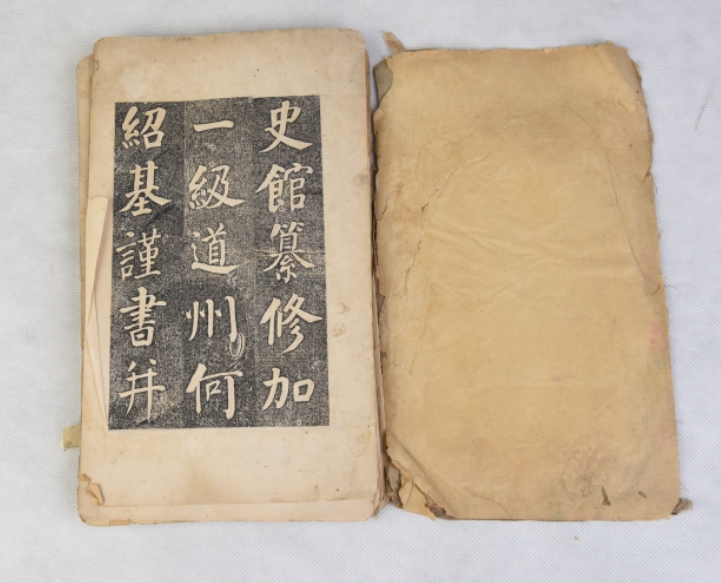 史館纂修加
一級道州何
紹基謹書并